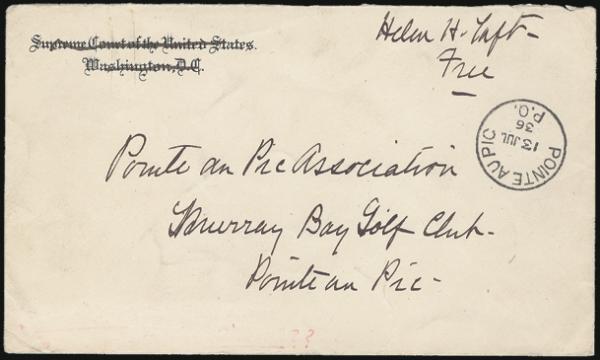 Supreme Court of the United States.
Washington, D.C.
Helen H. Taft-
Free
POINTE AU PIC
13 JUL
36
P.Q.
Pointe au Pic Association
Murray Bay Golf Club-
Pointe au Pic-
??